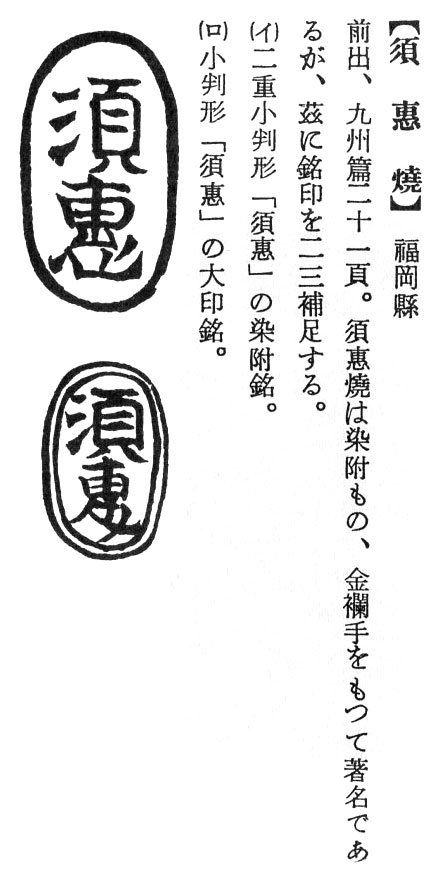 【須惠燒】 福岡縣
前出、九州篇二十一頁。須惠燒は染附もの、金襴手をもつて著名であ
るが、茲に銘印を二三補足する。
(イ)二重小判形「須惠」の染附銘。
(ロ)小判形「須惠」の大印銘。
須惠
須惠